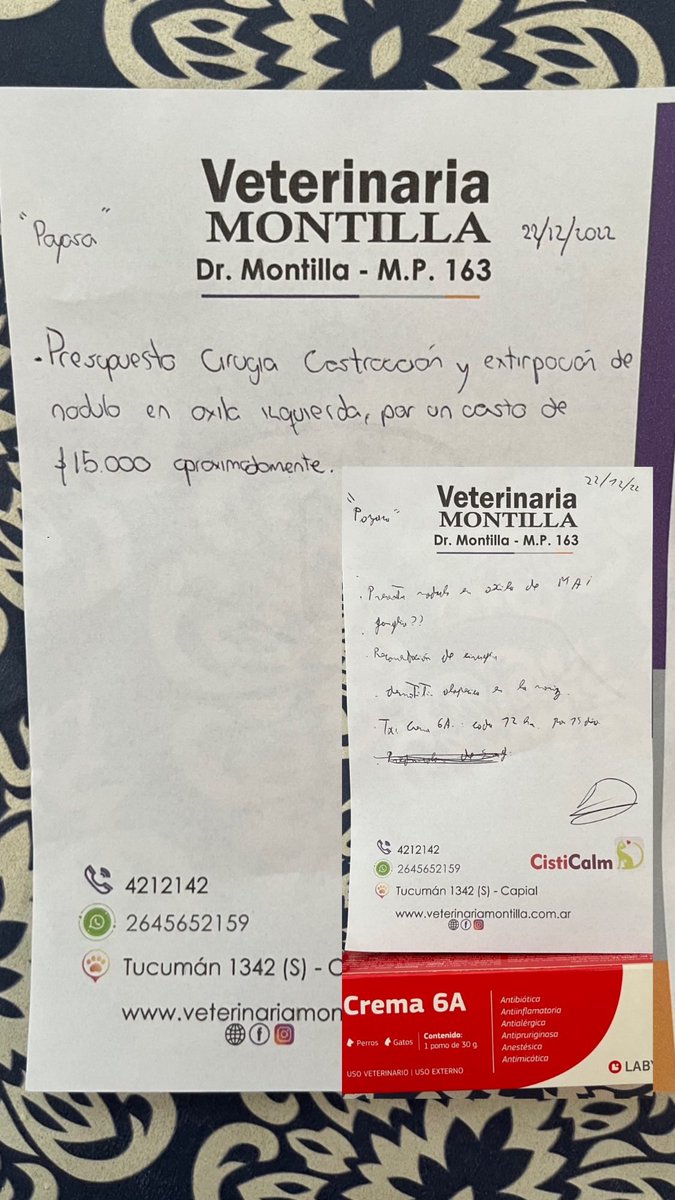 Veterinaria
MONTILLA
Dr. Montilla - M.P. 163
"Payasa"
22/12/2022
. Presupuesto Cirugia Castracción y extirpación de
nodulo en axila izquierda, por un costo de
$15.000 aproximadamente.
4212142
2645652159
Tucumán 1342 (S) - C
www.veterinariamon
22/12/22
Veterinaria
MONTILLA
Dr. Montilla - M.P. 163
. nodulo en axila de MAI
. ganglio??
. de
. en la nariz
. Tx: Crema 6A. cada 12 hs. por 15 dias
4212142
2645652159
Tucumán 1342 (S) - Capial
www.veterinariamontilla.com.ar
CistiCalm
Crema 6A
Perros
Gatos
Contenido:
1 pomo de 30 g
USO VETERINARIO | USO EXTERNO
Antibiótica
Antiinflamatoria
Antialérgica
Antipruriginosa
Anestésica
Antimicótica
LABY